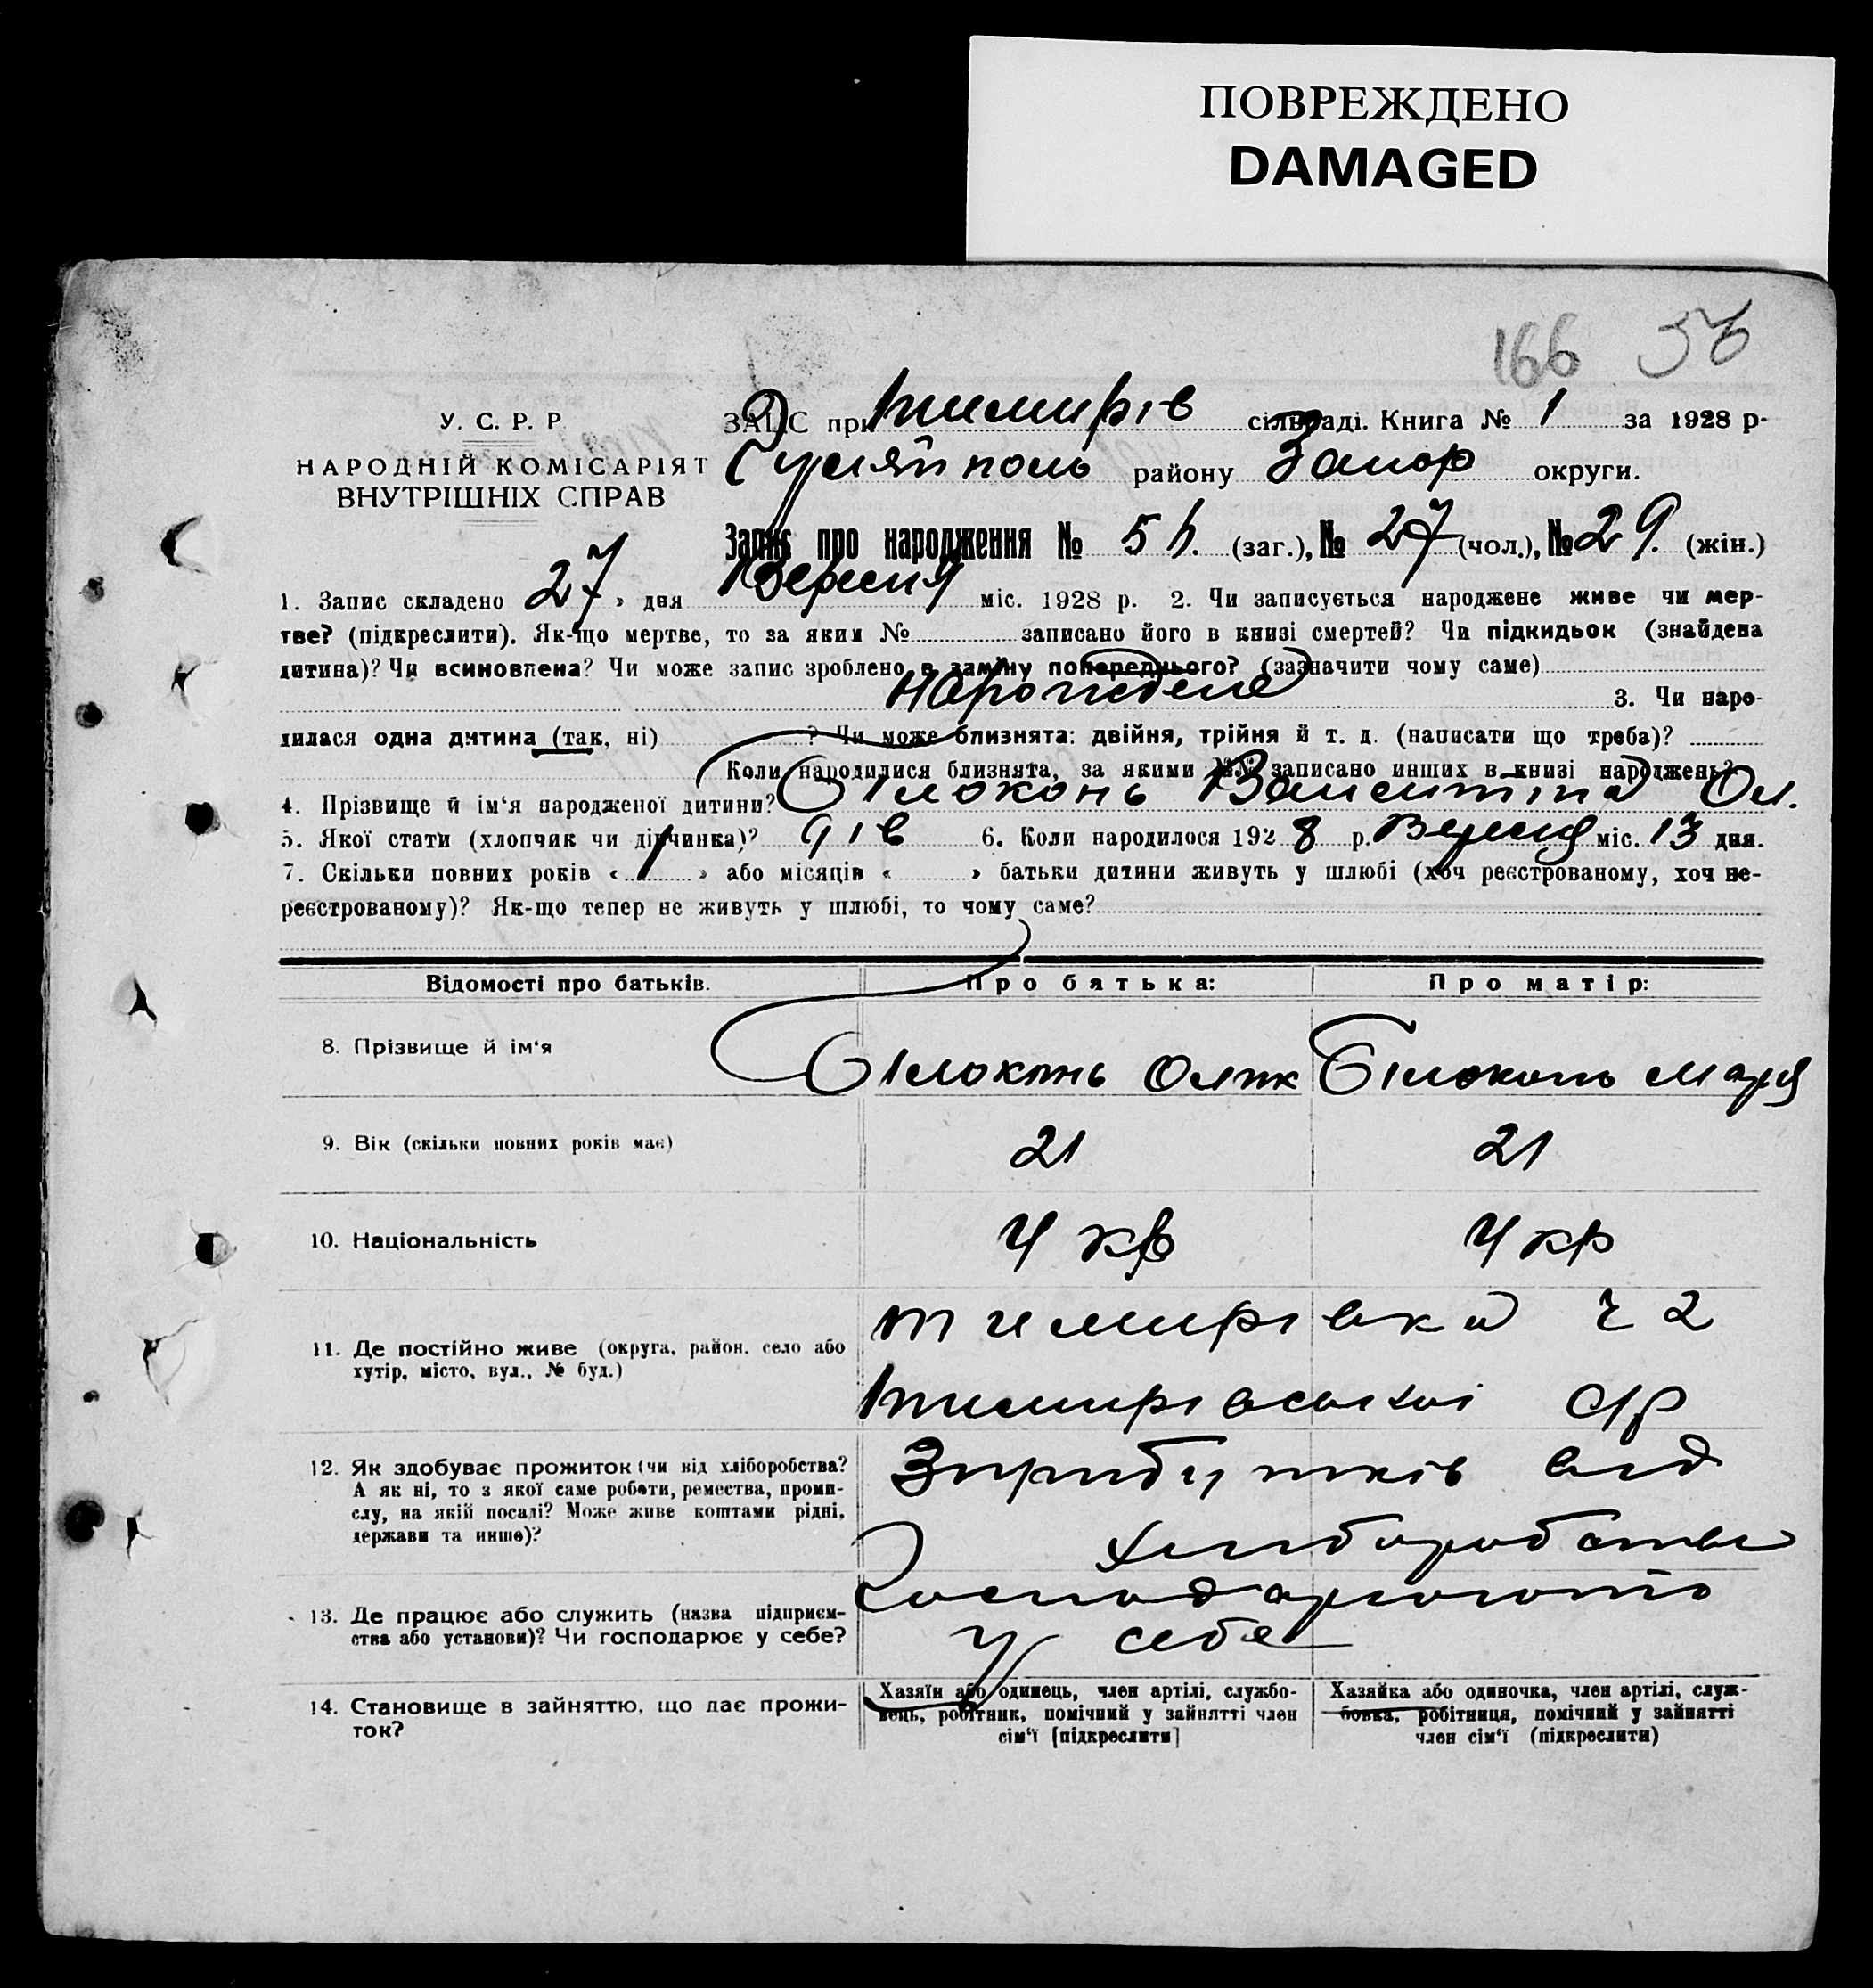 ПОВРЕЖДЕНО
DAMAGED
166 56
У. С. Р. Р.
НАРОДНІЙ КОМІСАРІЯТ
ВНУТРІШНІХ СПРАВ
ЗАГС при Темирів сільраді. Книга № 1 за 1928 р.
Гуляйполь району Запор округи.
Запис про народження № 56. (заг.), № 27 (чол.), № 29. (жін.)
1. Запис складено 27 » дня Вересня міс. 1928 р. 2. Чи записується народжене живе чи мер-
тве? (підкреслити). Як-що мертве, то за яким № записано його в книзі смертей? Чи підкидьок (знайдена
дитина)? Чи всиновлена? Чи може запис зроблено в заміну попереднього? (зазначити чому саме)
Народжене 3. Чи наро-
дилася одна дитина (так, ні) ? Чи може близнята: двійня, трійня й т. д. (написати що треба)?
Коли народилися близнята, за якими №№ записано инших в книзі народжень?
4. Прізвище й ім'я народженої дитини? Білоконь Валентина Ол.
5. Якої стати (хлопчик чи дівчинка)? дів 6. Коли народилося 1928 р. Вересня міс. 13 дня.
7. Скільки повних років « 1 » або місяців « » батьки дитини живуть у шлюбі (хоч реєстрованому, хоч не-
реєстрованому)? Як-що тепер не живуть у шлюбі, то чому саме?
Відомості про батьків. Про батька: Про матір:
8. Прізвище й ім'я Білоконь Білоконь Марія
9. Вік (скільки повних років має) 21 21
10. Національність Укр Укр
11. Де постійно живе (округа, район, село або
хутір, місто, вул., № буд.)
Темирівка ч 2
Темирівської с/р
12. Як здобуває прожиток (чи від хліборобства?
А як ні, то з якої саме роботи, ремества, проми-
слу, на якій посаді? Може живе коштами рідні,
держави та инше)?
Зприбутків від
хліборобства
13. Де працює або служить (назва підприєм-
ства або установи)? Чи господарює у себе?
Господарюють
у себе
14. Становище в зайняттю, що дає прожи-
ток?
Хазяїн або одинець, член артілі, службо-
вець, робітник, помічний у зайнятті член
сім'ї [підкреслити]
Хазяйка або одиночка, член артілі, служ-
бовка, робітниця, помічний у зайнятті
член сім'ї (підкреслити)